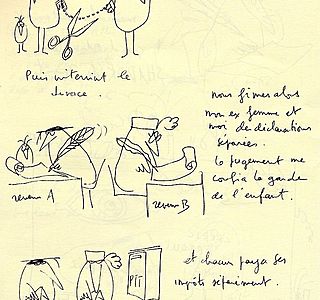 Puis intervint le
divorce.
nous fîmes alors
mon ex femme et
moi des déclarations
séparées.
Le jugement me
confia la garde
de l'enfant.
revenu A
revenu B
et chacun paya ses
impôts séparément.